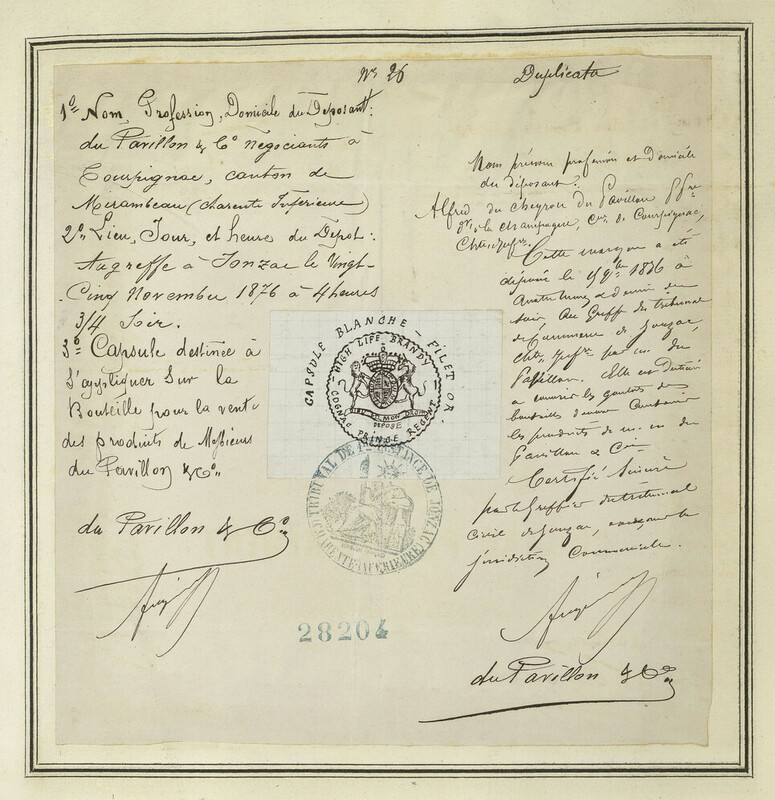 Nº 26
Duplicata
1º Nom, Profession, Domicile du Déposant:
du Pavillon & Cº négociants à
Courpignac, canton de
Mirambeau (Charente Inférieure)
2º Lieu, Jour, et heure du Dépôt:
Au greffe à Jonzac le Vingt-
Cinq Novembre 1876 à 4 heures
3/4 Soir.
3º Capsule destinée à
S'appliquer Sur la
Bouteille pour la vente
des produits de Messieurs
du Pavillon & Cº
du Pavillon & Cº
CAPSULE BLANCHE - FILET OR.
HIGH LIFE BRANDY
DIEU ET MON DROIT
DEPOSE
COGNAC PRINCE REGENT
TRIBUNAL DE 1ère INSTANCE DE JONZAC
(CHARENTE INFERIEURE)
28204
Nom prénom profession et Domicile
du déposant?
Alfred du Cheyron du Pavillon
la champagne, cne de Courpignac,
Chte Infre
Cette marque a été
déposée le 9bre 1876 à
quatre heures du
soir Au Greffe du tribunal
de Commerce de Jonzac,
Chte Infre par m. du
Pavillon. Elle est destinée
à couvrir les goulots des
bouteilles devant Contenir
les produits de m. du
Pavillon & Cie
Certifié Sincère
par le Greffier du tribunal
Civil de Jonzac, la
juridiction Commerciale.
du Pavillon & Cº